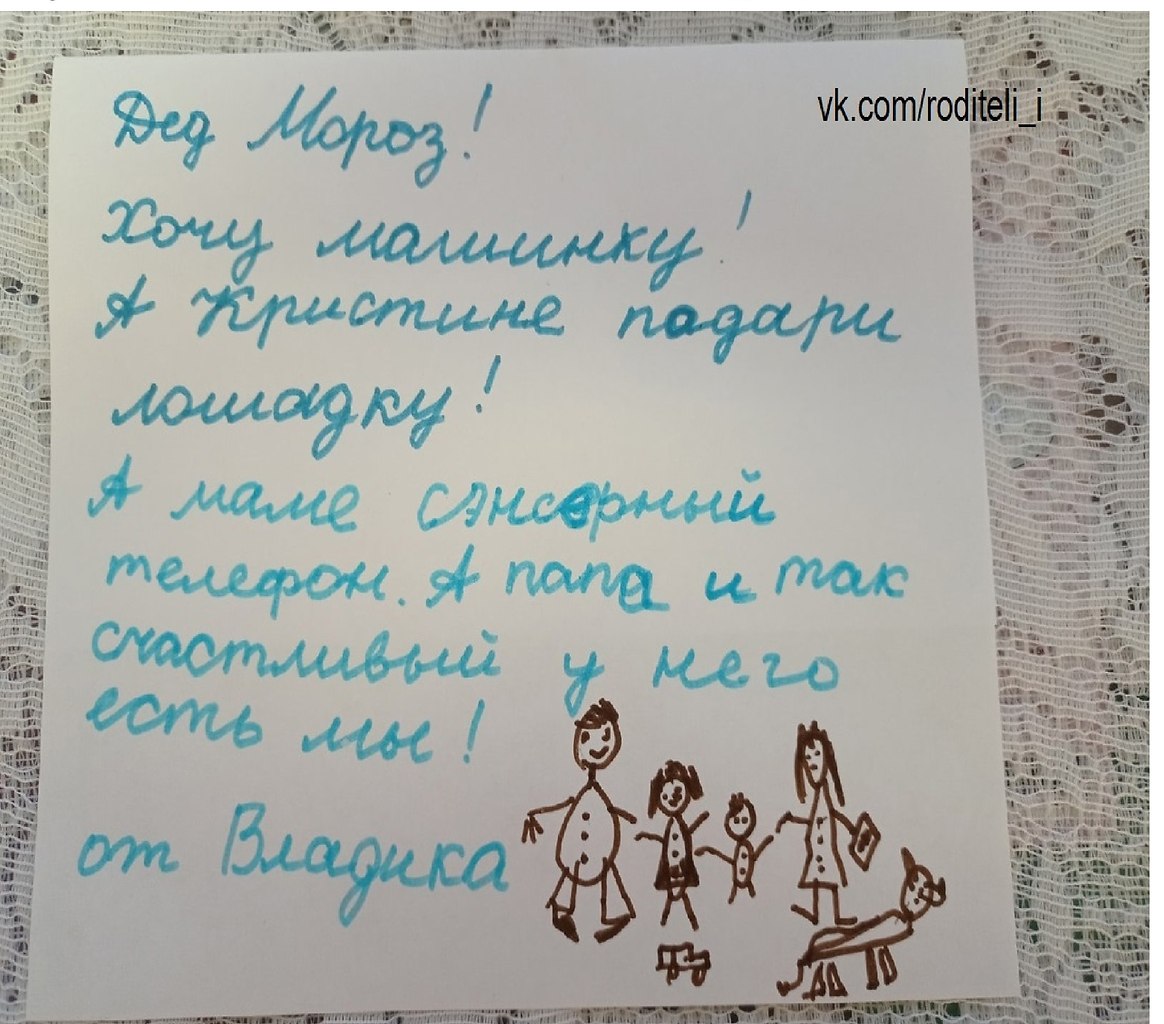 vk.com/roditeli_i
Дед Мороз!
Хочу машинку!
А Кристине подари
лошадку!
А маме сэнсорный
телефон. А папа и так
счастливый у него
есть мы!
от Владика